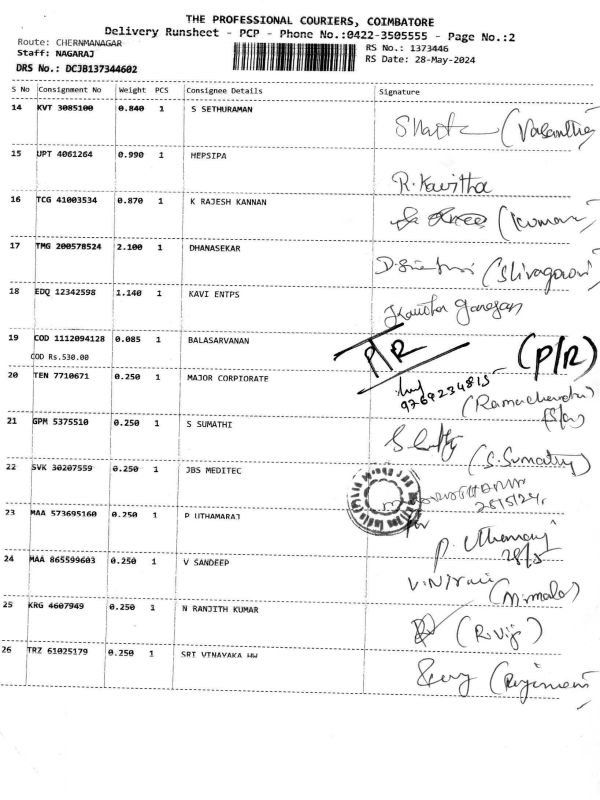 THE PROFESSIONAL COURIERS, COIMBATORE
Delivery Runsheet - PCP - Phone No.:0422-3505555 - Page No.:2
Route: CHERNMANAGAR
RS No.: 1373446
Staff: NAGARAJ
RS Date: 28-May-2024
DRS No.: DCJB137344602
S No Consignment No Weight PCS Consignee Details Signature
14 KVT 3085100 0.840 1 S SETHURAMAN
15 UPT 4061264 0.990 1 HEPSIPA
R. Kavitha
16 TCG 41003534 0.870 1 K RAJESH KANNAN
(Kumar)
17 TMG 200578524 2.100 1 DHANASEKAR
18 EDQ 12342598 1.140 1 KAVI ENTPS
19 COD 1112094128 0.085 1 BALASARVANAN P/R (P/R)
COD Rs.530.00
20 TEN 7710671 0.250 1 MAJOR CORPIORATE
9769234815
21 GPM 5375510 0.250 1 S SUMATHI
(S. Sumathy)
22 SVK 30207559 0.250 1 JBS MEDITEC
28/5/24,
23 MAA 573695160 0.250 1 P UTHAMARAJ
for
P. Uthamaraj
28/5
24 MAA 865599603 0.250 1 V SANDEEP
(Nirmala)
25 KRG 4607949 0.250 1 N RANJITH KUMAR
(R. Viji)
26 TRZ 61025179 0.250 1 SRI VINAYAKA HW